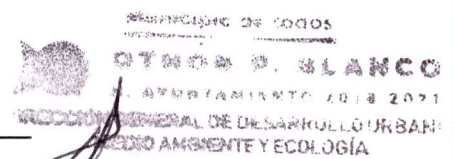 MUNICIPIO DE TODOS
OTHÓN P. BLANCO
H. AYUNTAMIENTO 2018 2021
GENERAL DE DESARROLLO URBAN
MEDIO AMBIENTE Y ECOLOGÍA